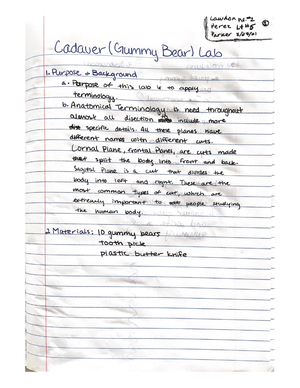 Cawdon Nº1
Perez Lt#5
Parker
Cadaver (Gummy Bear) Lab
1. Purpose & Background
a. Purpose of this lab is to apply
terminology.
b. Anatomical Terminology is need throughout
almost all disection include more
specific details. All these planes have
different names with different cuts.
Cornal Plane, frontal Planes, are cuts made
that split the body into front and back.
Sagital Plane is a cut that divides the
body into left and right. These are the
most common types of cut, which are
extreamly important to people studying
the human body.
2. Materials: 10 gummy bears
tooth pick
plastic butter knife